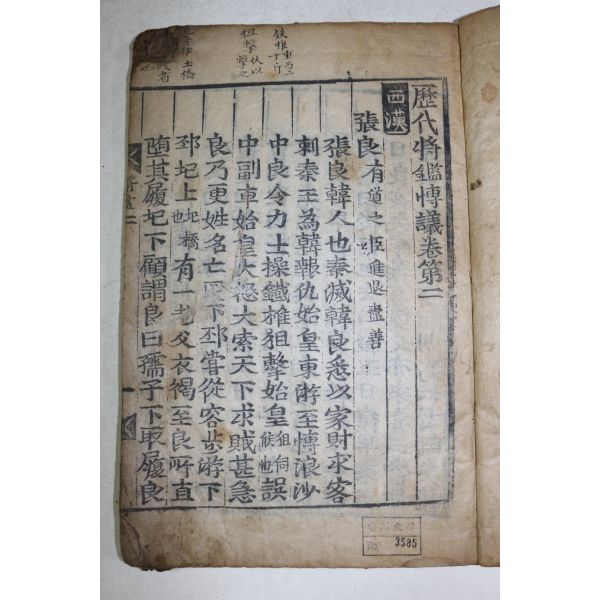 歷代將鑑博議卷第二
西漢
張良 有道之臣進退盡善
張良韓人也秦滅韓良悉以家財求客
刺秦王為韓報仇始皇東游至博浪沙
中良令力士操鐵椎狙擊始皇 狙伺候也 誤
中副車始皇大怒大索天下求賊甚急
良乃更姓名亡匿下邳嘗從容步游下
邳圯上 圯橋也 有一老父衣褐至良所直
墮其履圯下顧謂良曰孺子下取履良
將鑑二
一
鉄椎重百二十斤
狙擊伏以擊之
土橋
No. 3585